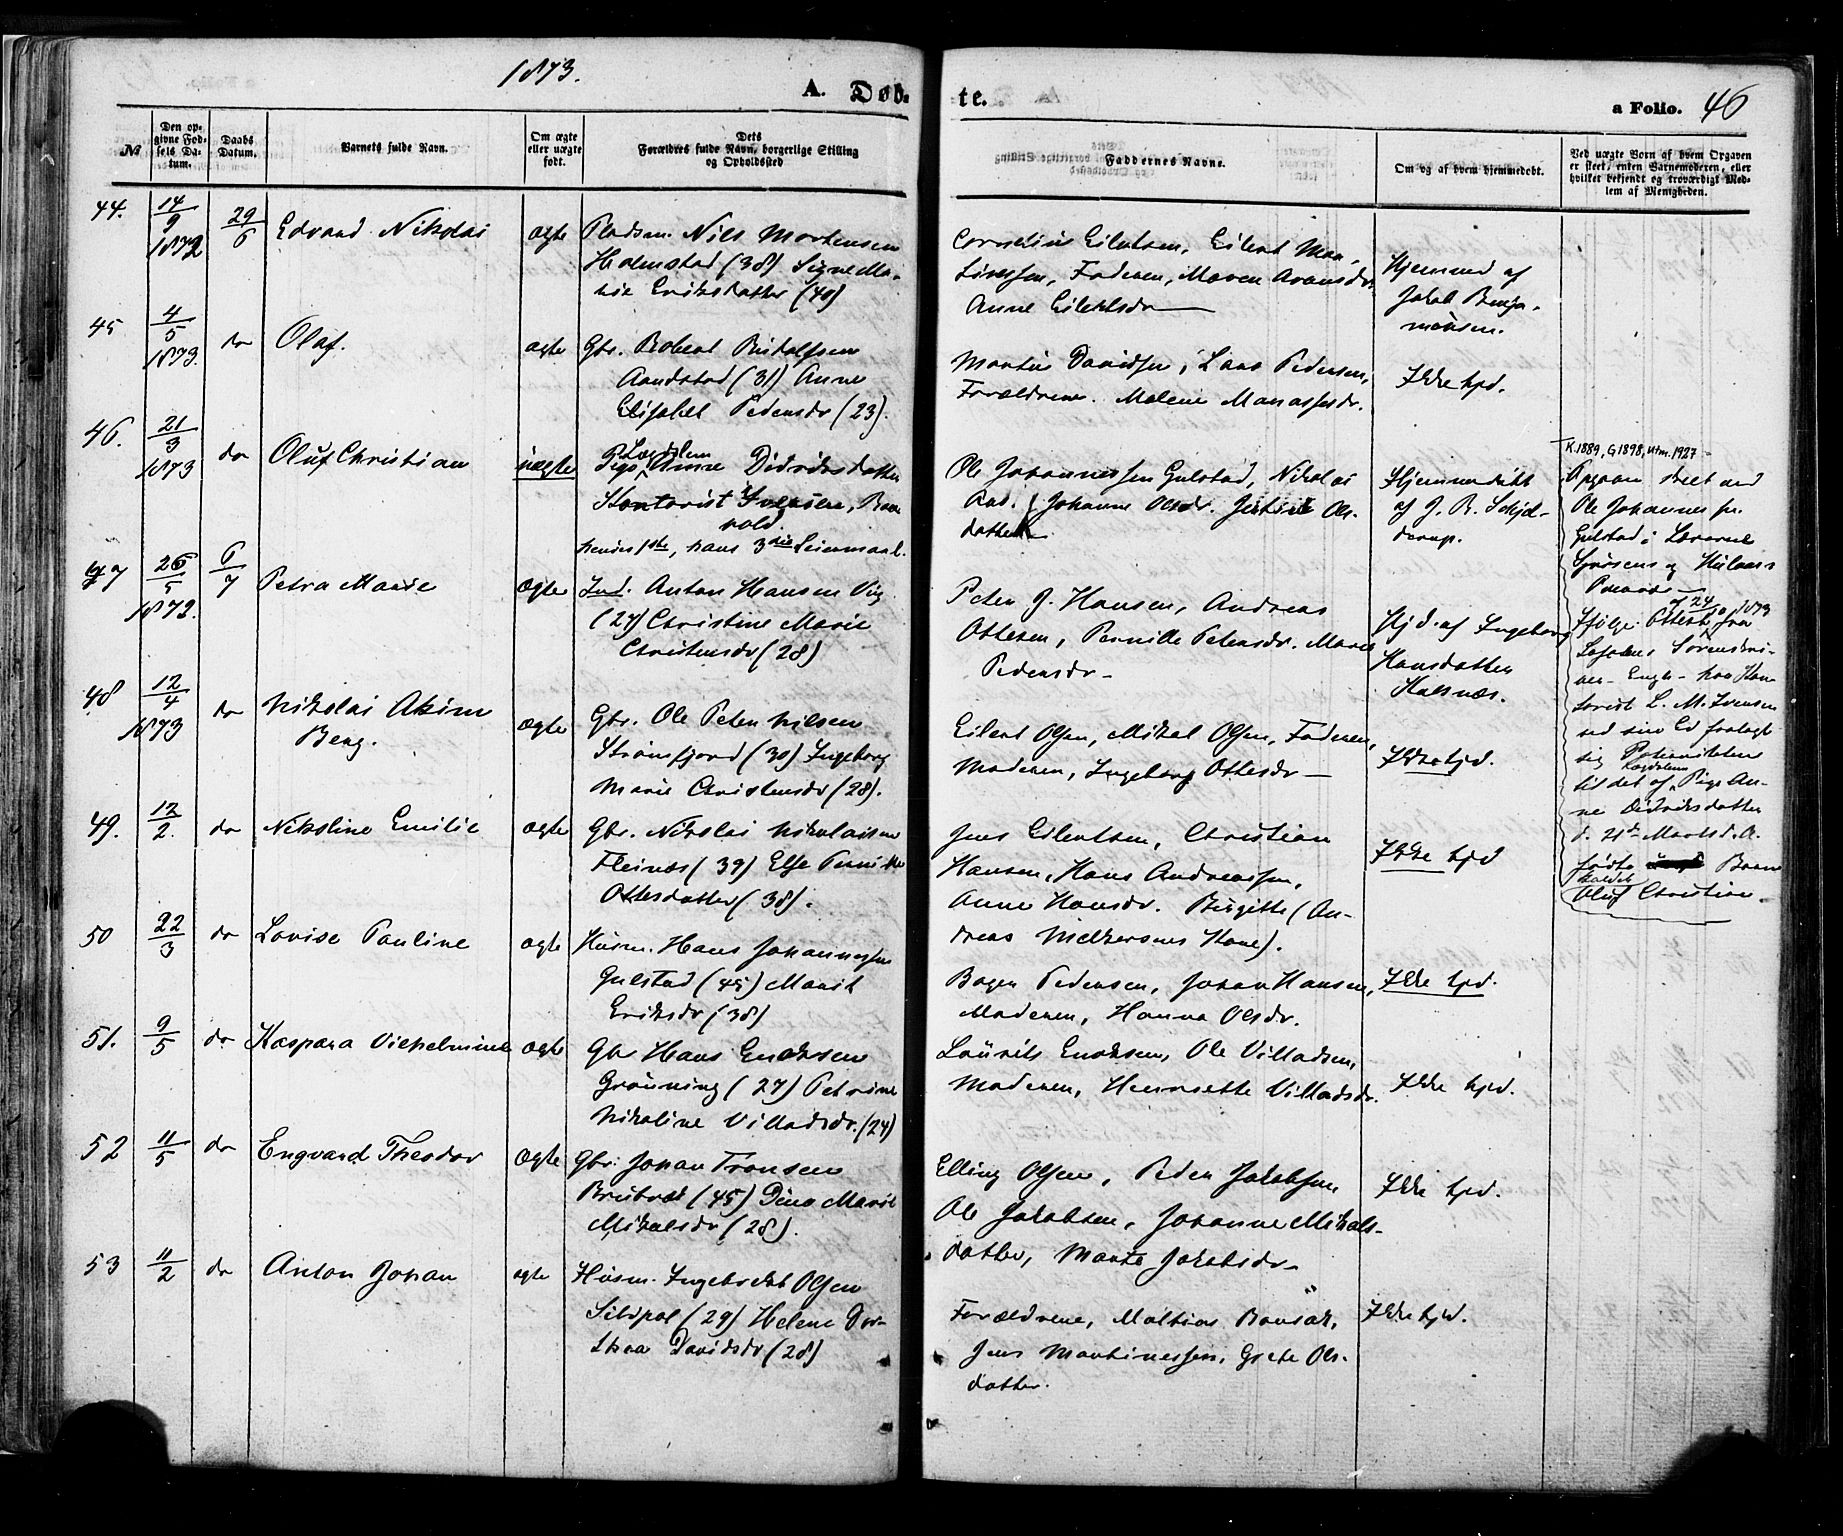 1873.
A. Døb-
te.
a Folio. 46
№
Den op-
givne Fød-
sels Da-
tum.
Daabs
Datum.
Barnets fulde Navn.
Om ægte
eller uægte
født.
Dets
Forældres fulde Navn, borgerlige Stilling
og Opholdssted
Faddernes Navne.
Om og af hvem hjemmedøbt.
Ved uægte Børn af hvem Opgaven
er skeet, enten Barnemoderen, eller
hvilket bekjendt og troværdigt Med-
lem af Menigheden.
44. 14/9 1872 29/6 Edvard Nikolai ægte Pladsm. Nils Mortensen
Holmstad (38) Signe Ma-
rie Eriksdatter (40)
Cornelius Eilertsen, Eilert Mar-
Faderen, Maren
Anne Eilertsdr
Hjemmed af
Jakob Benja-
minsen.
45 4/5 1873. do Olaf. ægte Gbr. Robert
(31) Anne
Elisabet Pedersdr (23).
Martin Davidsen, Lars Pedersen,
Forældrene. Malene Manassesdr.
Ikke hjd.
46. 21/3 1873 do Oluf Christian uægte Pige Anne Didriksdatter
Kontorist
hendes 1ste, hans 3die Leiermaal.
Ole Johannessen Gulstad, Nikolai
Johanne Olsdr. Ols-
datter
Hjemmedøbt
af J. B. Schjel-
derup.
K.1889, G 1898, Utm. 1927
Opgaven skeet ved
Ole Johannessen
Gulstad i Lærerne
og
24/10 1873
Ifølge Attest fra
Lofotens Sorenskri-
ver har Kon-
torist L. M. Ivensen
ved sin Ed fralagt
sig Paterniteten
til det af Pige An-
ne Didriksdatter
d. 21de Marts d. A.
fødte Barn
kaldet
Oluf Christian
47 26/5 1872. 6/7 Petra Marie ægte Ind. Anton Hansen Vig
(27) Christine Marie
Christensdr (28)
Peter J. Hansen, Andreas
Ottesen, Pernille Petersdr. Maren
Pedersdr
Hjd. af Ingeborg
Hansdatter
Halsnæs.
48 12/4 1873 do Nikolai Akim
Berg.
ægte Gbr. Ole Peter Nilsen
Strømfjord (30) Ingeborg
Marie Christensdr (28).
Eilert Olsen, Mikal Olsen, Faderen,
Moderen, Ingeborg Ottesdr
Ikke hjd.
49. 12/2. do Nikoline Emilie ægte Gbr. Nikolai Nikolaisen
Fleinæs (39) Else Pernille
Ottesdatter (38).
Jens Eilertsen, Christian
Hansen, Hans Andreassen,
Anne Hansdr. Birgitte (An-
dreas Melkersens Kone).
Ikke hjd
50 22/3 do Lovise Pauline ægte Husm. Hans Johannessen
Gulstad (45) Marit
Eriksdr (38)
Pedersen, Johan Hansen,
Moderen, Hanna Olsdr.
Ikke hjd.
51. 9/5 do Kaspara Vilhelmine ægte Gbr Hans Enoksen
Grønning (27) Petrine
Nikoline Villadsdr. (24)
Laurits Enoksen, Ole Villadsen,
Moderen, Henriette Villadsdr.
Ikke hjd.
52 11/5 do Engvard Theodor ægte Gbr. Johan Tronsen
(45) Dina Marit
Mikalsdr (28).
Elling Olsen, Peder Jakobsen
Ole Jakobsen, Johanne Mikals-
datter, Marta Jakobsdr
Ikke hjd.
53 11/2 do Anton Johan ægte Husm. Ingebrekt Olsen
Sildpol (29) Helene Dor-
thea Davidsdr (28)
Forældrene, Mathias
Jens Martinussen, Grete Ols-
datter.
Ikke hjd.